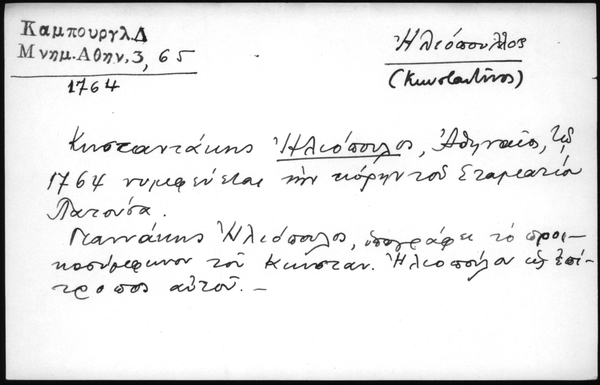 Καμπουργλ.Δ
Μνημ.Αθην.3, 65
1764
Ἠλιόπουλος
(Κωνσταντῖνος)
Κωσταντάκης Ἠλιόπουλος, Ἀθηναῖος, τῷ
1764 νυμφεύεται τὴν κόρην τοῦ Σταματίου
Πατούσα.
Γιαννάκης Ἠλιόπουλος, ὑπογράφει τὸ προι-
κοσύμφωνον τοῦ Κωνσταν. Ἠλιοπούλου ὡς ἐπί-
τροπος αὐτοῦ. –